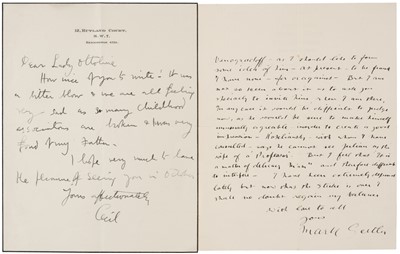 12, RUTLAND COURT,
S.W.7.
Dear Lady Ottoline
How nice of you to write! It was
a bitter blow & we are all feeling
very sad as so many childhood
associations are broken & I was very
fond of my Father.
I hope very much to have
the pleasure of seeing you in October
Yours affectionately
Cecil
as I should like to form
some idea of him - at present - to be frank
I have none - for or against - But I am
not so keen about it as to ask you
to invite him when I am there,
In any case it would be difficult to judge
now, as he would be sure to make himself
unusually agreeable in order to create a good
impression - Koteliansky - with whom I have
consulted - says he cannot see Juliette as the
wife of a Professor - But I feel that is
a matter of and therefore difficult
to interfere - I have been extremely
lately, but now that the strike is over I
shall no doubt regain my balance
With love to all
yours
Mark Gertler